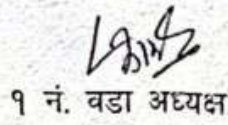 १ नं. वडा अध्यक्ष